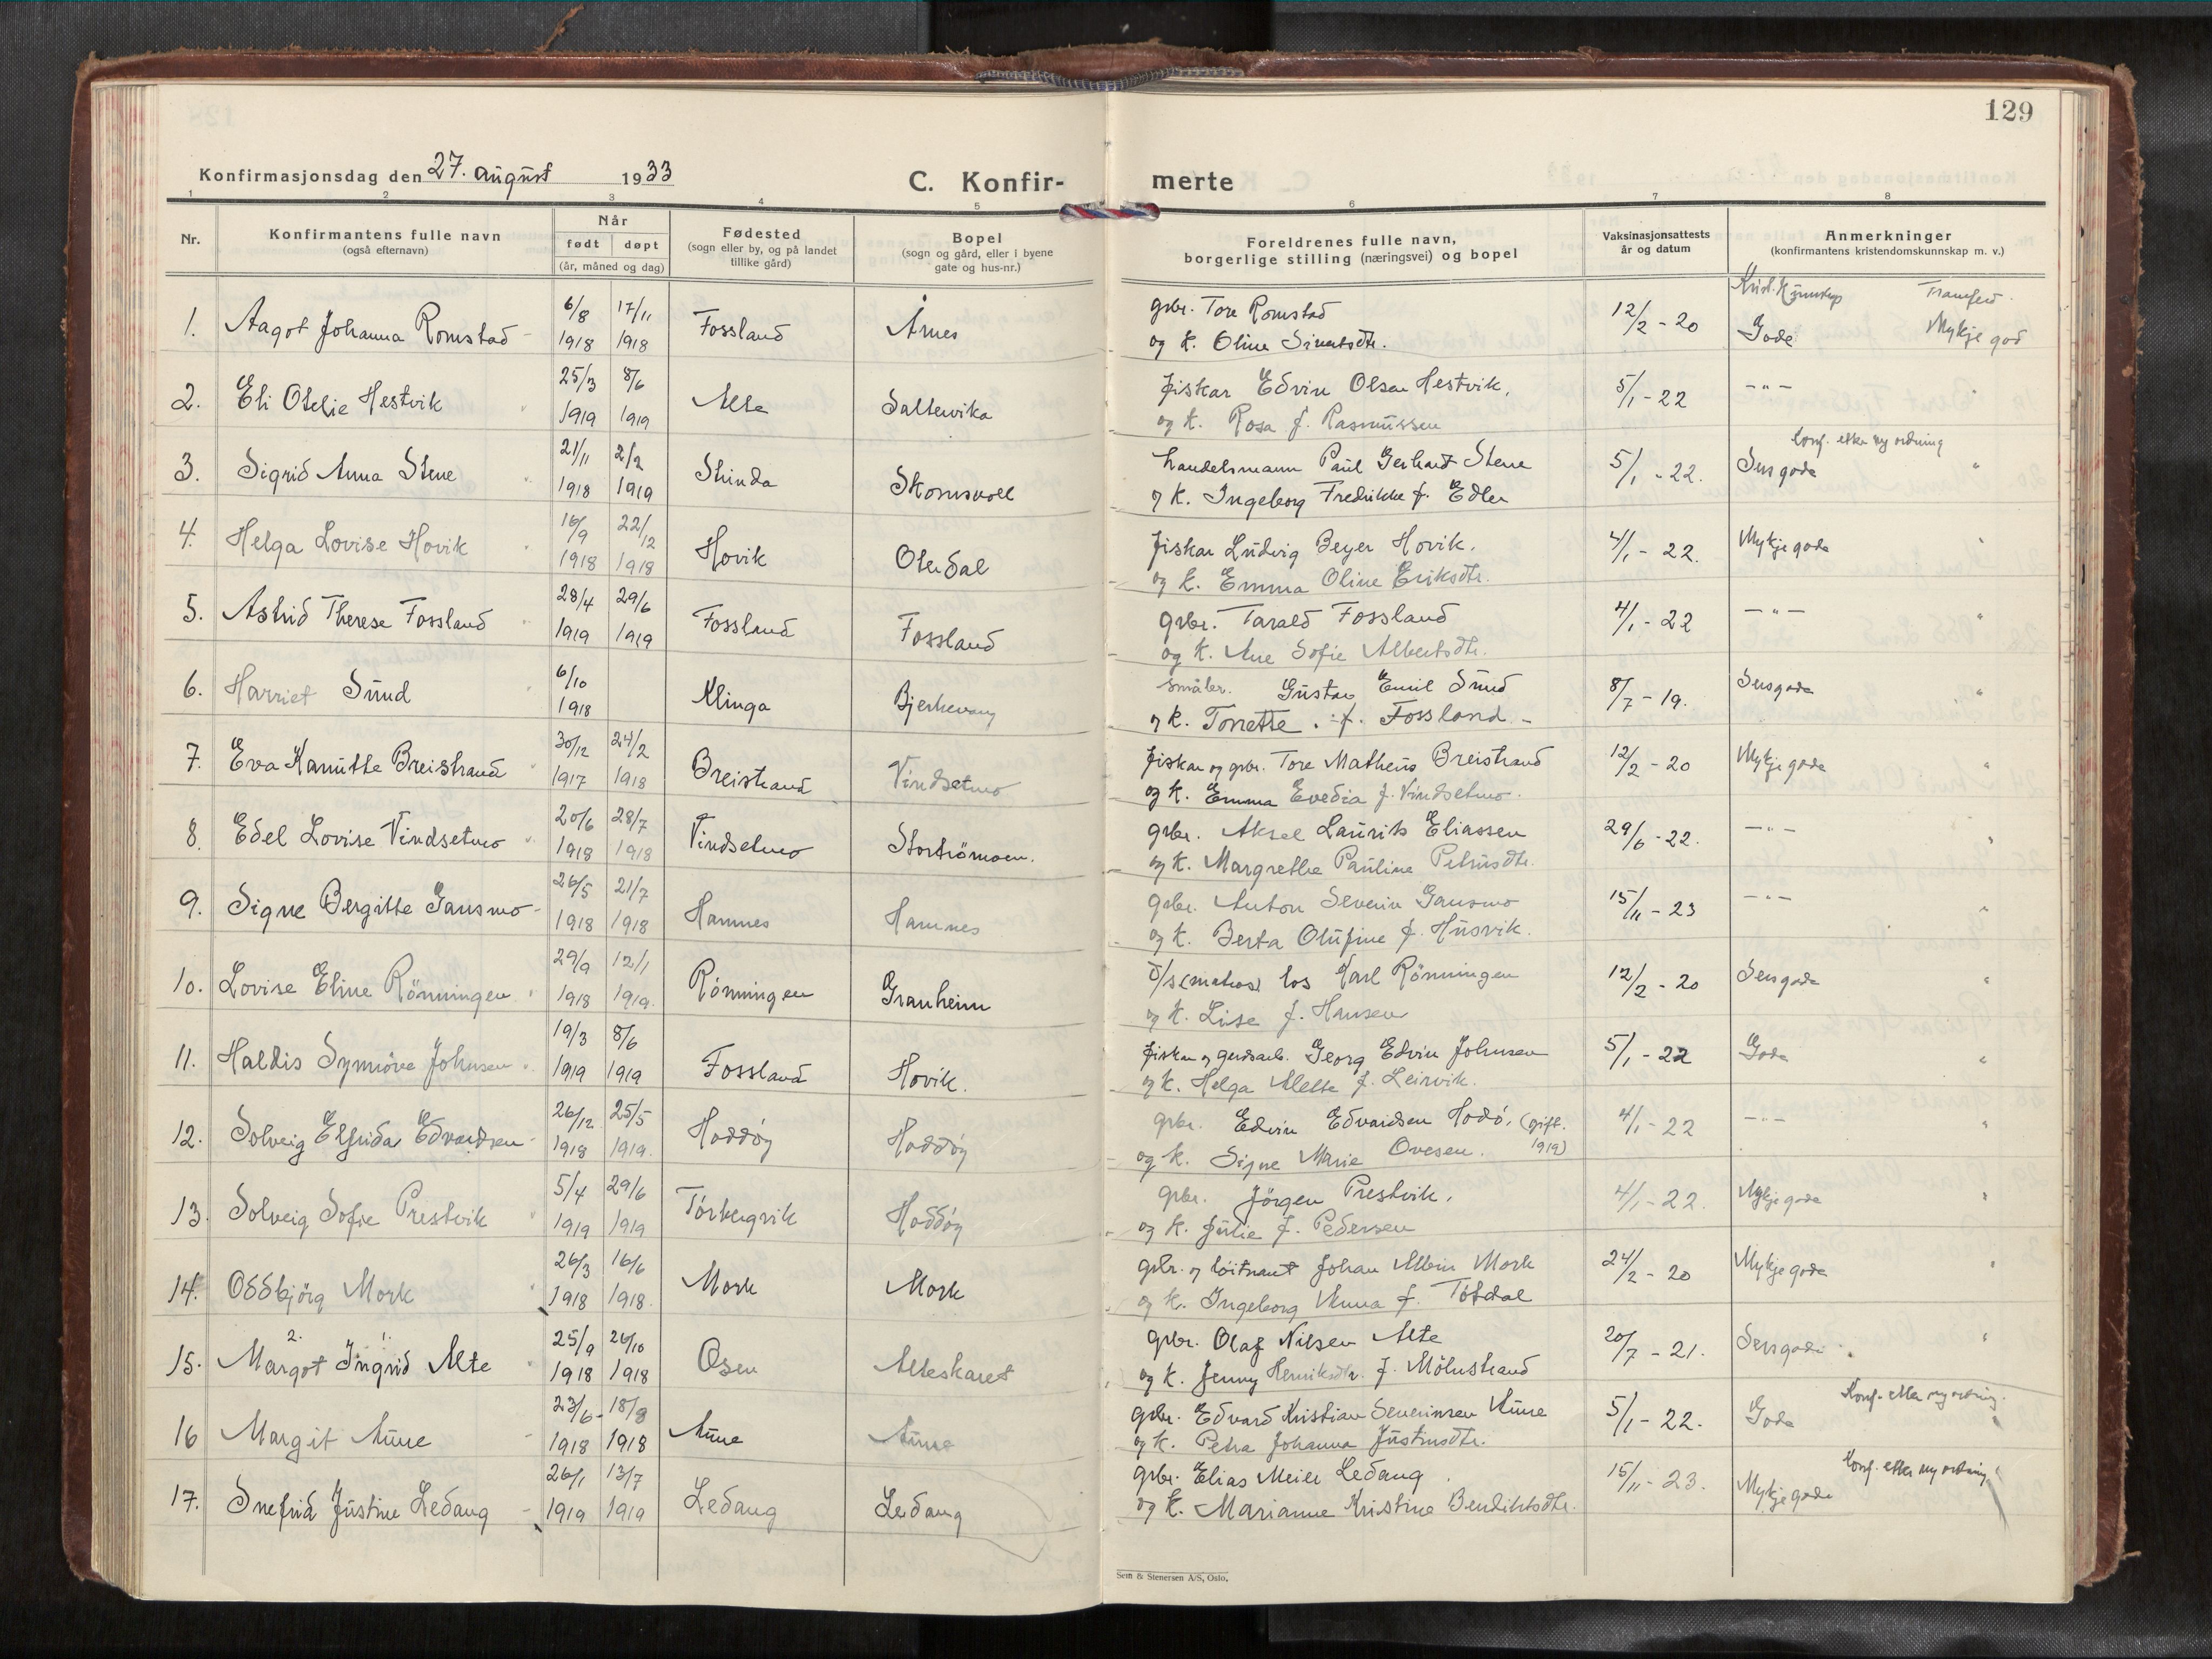 129
Konfirmasjonsdag den 27. august 1933
C. Konfir-
merte
1 2 3 4 5 6 7 8
Nr.
Konfirmantens fulle navn
(også efternavn)
Når
født døpt
(år, måned og dag)
Fødested
(sogn eller by, og på landet
tillike gård)
Bopel
(sogn og gård, eller i byene
gate og hus-nr.)
Foreldrenes fulle navn,
borgerlige stilling (næringsvei) og bopel
Vaksinasjonsattests
år og datum
Anmerkninger
(konfirmantens kristendomskunnskap m. v.)
Framferd.
1. Aagot Johanna Romstad 6/8 1918 17/11 1918 Fossland Årnes
gbr. Tore Romstad 12/2 - 20 Gode Mykje god
og k. Oline Sivertsdtr.
2. Eli Otelie Hestvik 25/3 1919 8/6 1919 Alte Saltevika
fiskar Edvin Olsen Hestvik, 5/1 - 22 -"- "
og k. Rosa f. Rasmussen
3. Sigrid Anna Stene 21/11 1918 2/2 1919 Strinda Skomsvoll
Konf. etter ny ordning
handelsmann Paul Gerhard Stene 5/1 - 22. Sers gode "
og k. Ingeborg Fredrikke f. Edler
4. Helga Lovise Hovik 16/9 1918 22/12 1918 Hovik Oterdal
fiskar Ludvig Beyer Hovik. 4/1 - 22. Mykje gode "
og k. Emma Oline Eriksdtr.
5. Astrid Therese Fossland 28/4 1919 29/6 1919 Fossland Fossland
gbr. Tarald Fossland 4/1 - 22 -"- "
og k. Ane Sofie Albertsdtr.
6. Harriet Sund 6/10 1918 Klinga Bjerkevang
småbr. Gustav Emil Sund 8/7 - 19. Sers gode "
og k. Torrette f. Fossland -
7. Eva Kamitte Breistrand 30/12 1917 24/2 1918 Breistrand Vindsetmo
fiskar og gbr. Tore Matheus Breistrand 12/2 - 20 Mykje gode "
og k. Emma Evedia f. Vindsetmo.
8. Edel Lovise Vindsetmo 20/6 1918 28/7 1918 Vindsetmo Stortrömoen.
gbr. Aksel Laurits Eliassen 29/6 - 22. -"- "
og k. Margrethe Pauline Petrusdtr.
9. Signe Bergitte Gansmo 26/5 1918 21/7 1918 Hamnes Hamnes
gbr. Anton Severin Gansmo 15/11 - 23 -"- "
og k. Berta Olufine f. Husvik.
10. Lovise Eline Rönningen 29/9 1918 12/1 1919. Rönningen Granheim
(matros) los Karl Rönningen 12/2 - 20 Sers gode "
og k. Lise f. Hansen
11. Haldis Synnöve Johnsen 19/3 1919 8/6 1919 Fossland Hovik.
fiskar og gardsarb. Georg Edvin Johnsen 5/1 - 22 Gode "
og k. Helga Alette f. Leirvik.
12. Solveig Elfrida Edvardsen 26/12 1918 25/5 1919. Hoddöy Hoddöy
gbr. Edvin Edvardsen Hodö, (gift. 1919) 4/1 - 22 -"- "
og k. Signe Marie Ovesen.
13. Solveig Sofie Prestvik 5/4 1919 29/6 1919 Hoddöy
gbr. Jörgen Prestvik. 4/1 - 22. Mykje gode "
og k. Julie f. Pedersen
14. Oddbjörg Mork 26/3 1918 16/6 1918. Mork Mork
gbr. og löitnant Johan Albin Mork 24/2 - 20 Mykje gode "
og k. Ingeborg Anna f. Tötdal
2. 1.
15. Margot Ingrid Alte 25/9 1918 26/10 1918 Osen Alteskaret
gbr. Olaf Nilsen Alte 20/7 - 21. Sers gode "
og k. Jenny Henriksdtr. f. Mölnstrand
16 Margit Aune 23/6 1918 18/8 1918 Aune Aune
Konf. etter ny ordning.
gbr. Edvard Kristian Severinsen Aune 5/1 - 22. Gode
og k. Petra Johanna Justinsdtr.
17. Snefrid Justine Ledang 26/1 1919 13/7 1919 Ledang Ledang
Konf. etter ny ordning
gbr. Elias Meier Ledang 15/11 - 23. Mykje gode
og k. Marianne Kristine Bendiktsdtr.
Sem & Stenersen A/S, Oslo.